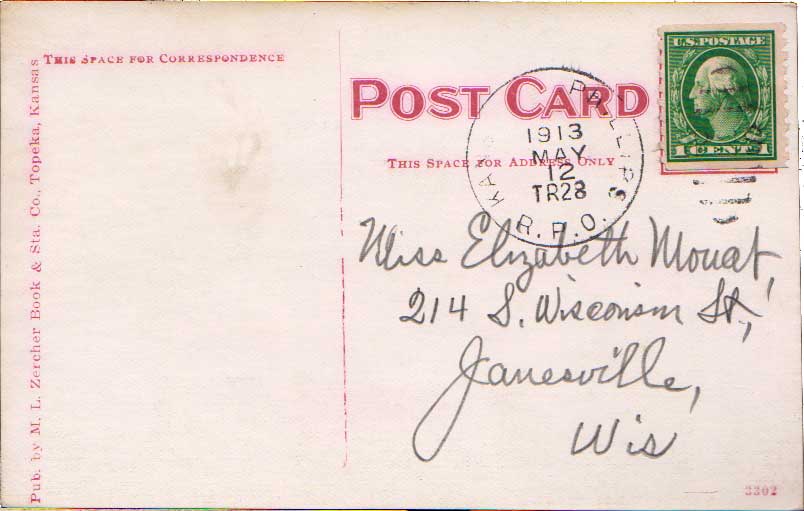 THIS SPACE FOR CORRESPONDENCE
Pub. by M. L. Zercher Book & Sta. Co., Topeka, Kansas
POST CARD
THIS SPACE FOR ADDRESS ONLY
U.S. POSTAGE
1 CENT 1
KANS PHILLIPS
1913
MAY
12
TR28
R.P.O.
Miss Elizabeth Mouat,
214 S. Wisconsin St.,
Janesville,
Wis
3302